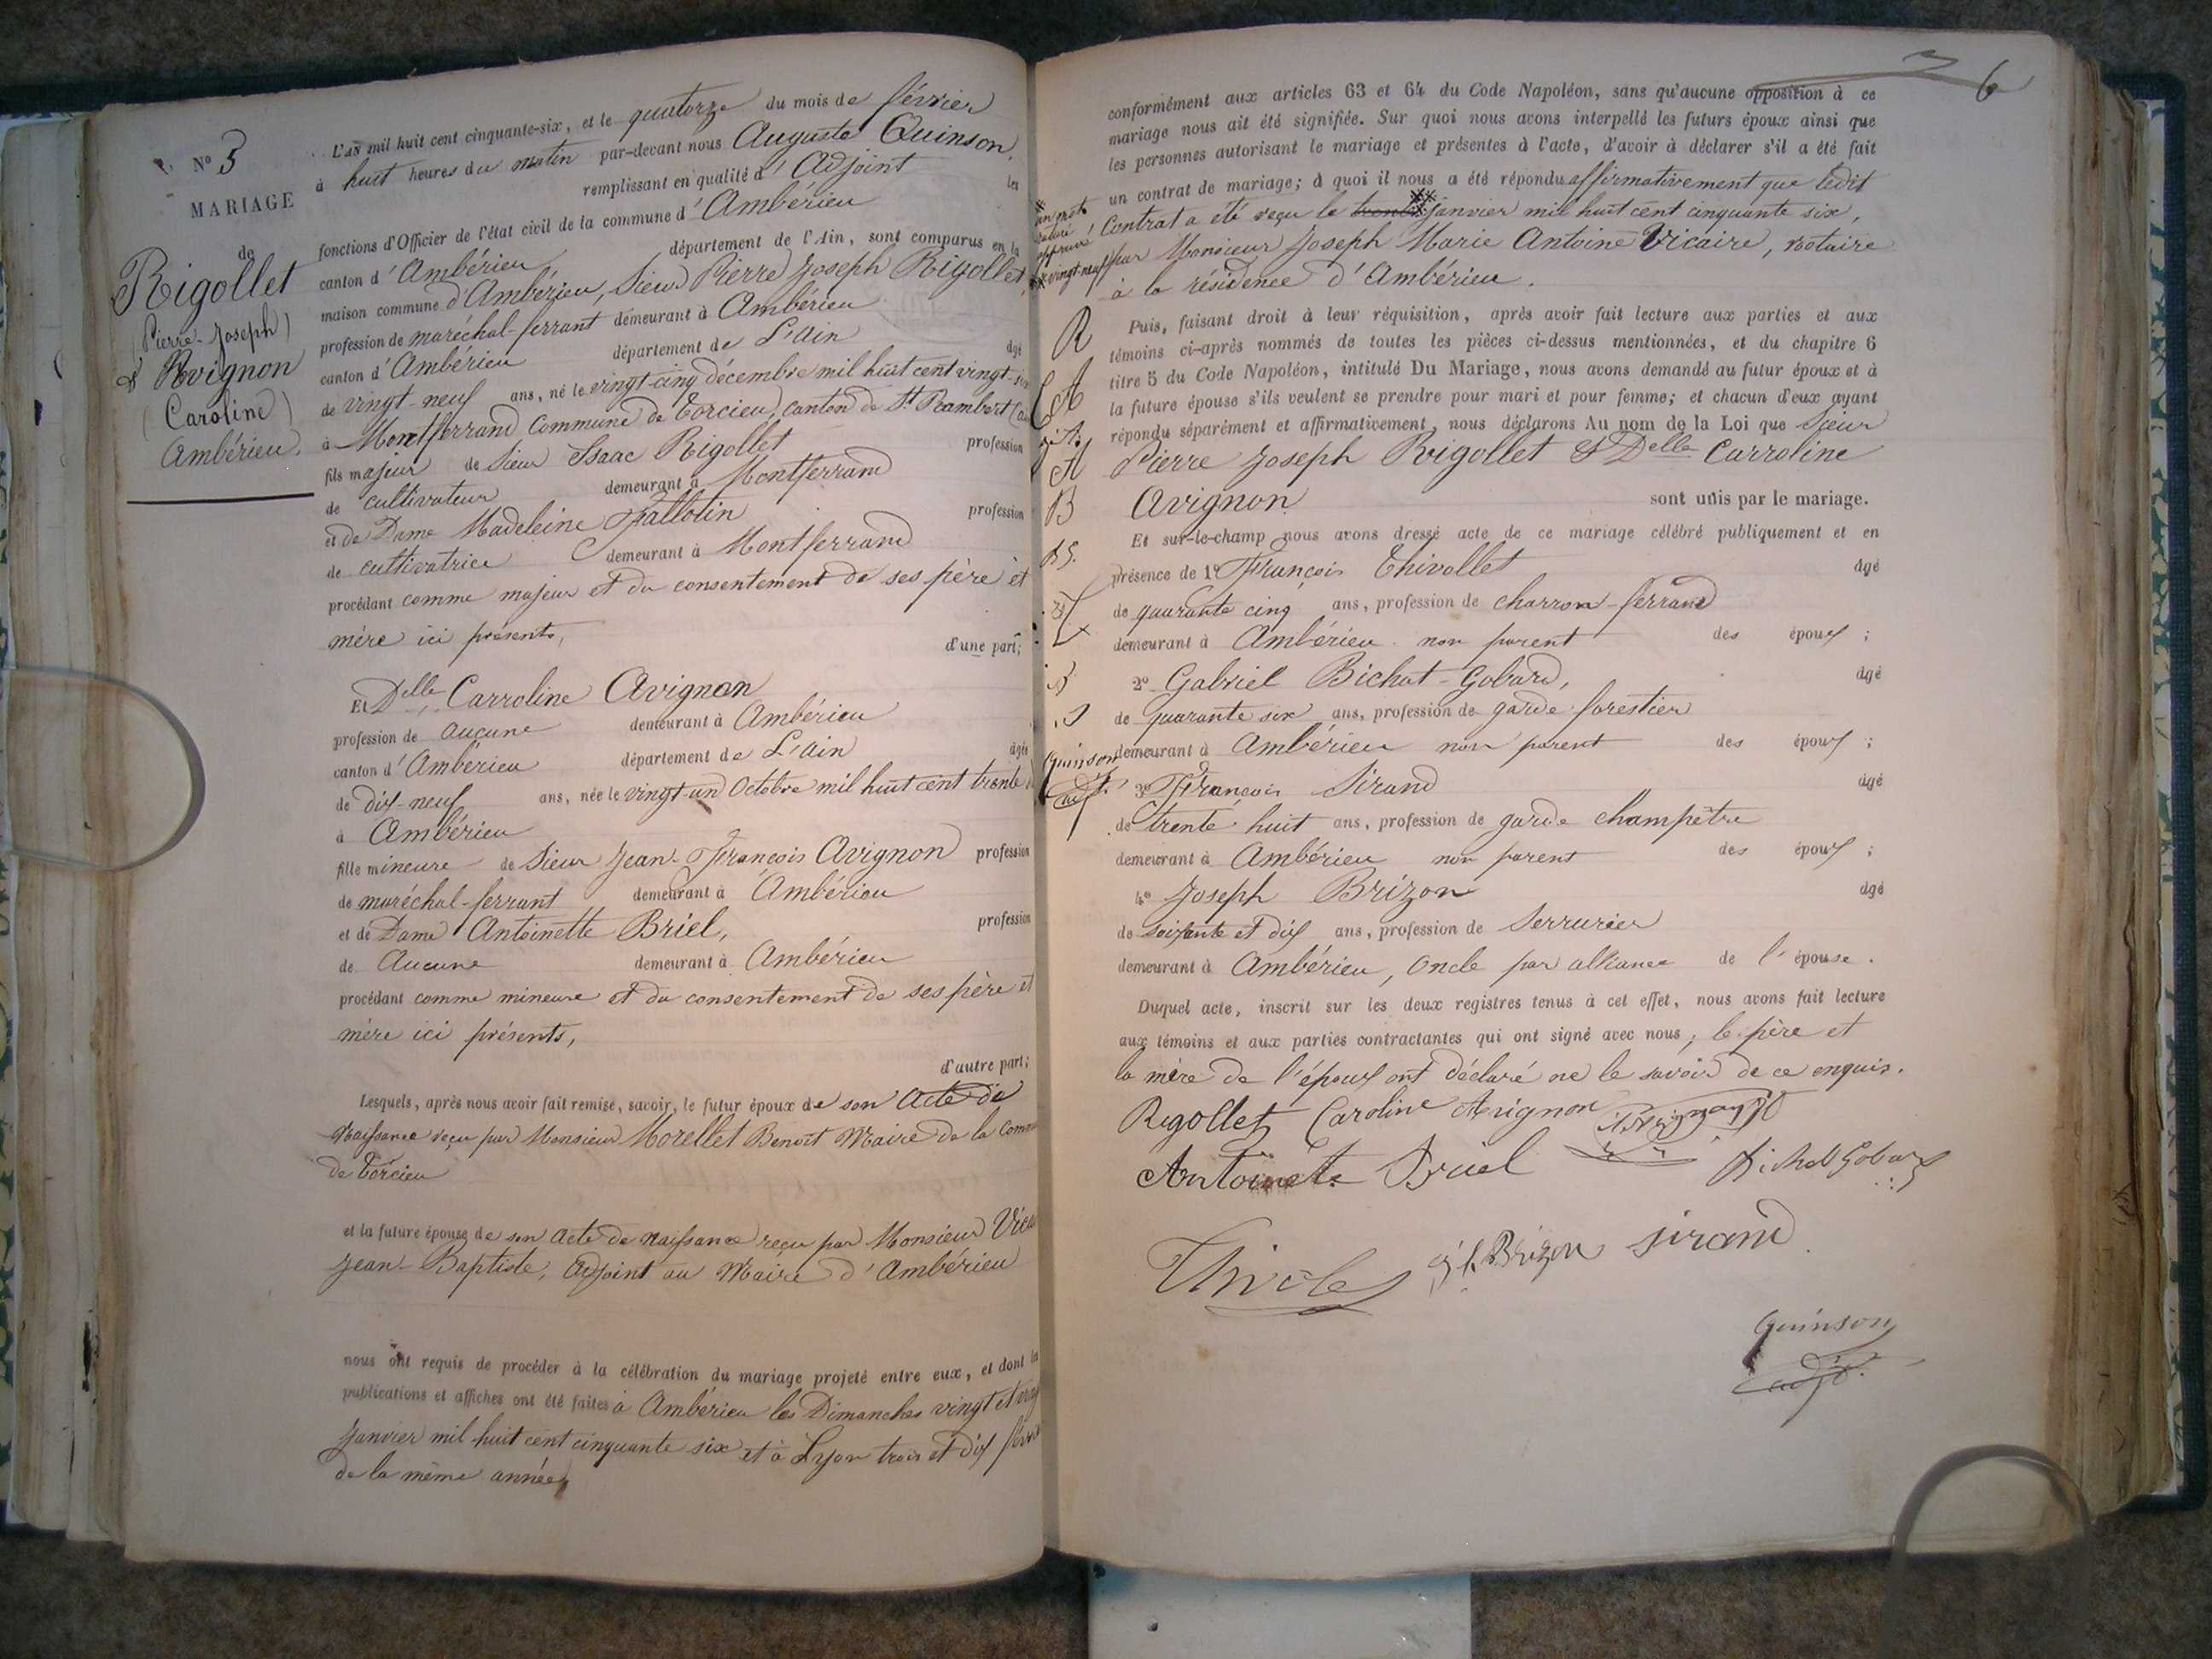 N° 3
MARIAGE
de
Rigollet
(Pierre-Joseph)
& Avignon
(Caroline)
Ambérieu.
L'an mil huit cent cinquante-six, et le quatorze du mois de février
à huit heures du matin par-devant nous Auguste Quinson,
remplissant en qualité d'Adjoint les
fonctions d'Officier de l'état civil de la commune d'Ambérieu
canton d'Ambérieu département de l'Ain, sont comparus en la
maison commune d'Ambérieu, Sieur Pierre Joseph Rigollet,
profession de maréchal-ferrant demeurant à Ambérieu
canton d'Ambérieu département de L'ain âgé
de vingt-neuf ans, né le vingt-cinq décembre mil huit cent vingt-six
à Montferrand Commune de Torcieu, canton de St Rambert
fils majeur de Sieur Isaac Rigollet profession
de cultivateur demeurant à Montferrand
et de Dame Madeleine Fallotin profession
de cultivatrice demeurant à Montferrand
procédant comme majeur et du consentement de ses père et
mère ici présents, d'une part;
Et Delle Carroline Avignon
profession de aucune demeurant à Ambérieu
canton d'Ambérieu département de L'ain âgée
de dix-neuf ans, née le vingt-un Octobre mil huit cent trente
à Ambérieu
fille mineure de Sieur Jean-François Avignon profession
de maréchal-ferrant demeurant à Ambérieu
et de Dame Antoinette Briel, profession
de Aucune demeurant à Ambérieu
procédant comme mineure et du consentement de ses père et
mère ici présents,
d'autre part;
Lesquels, après nous avoir fait remise, savoir, le futur époux de son acte de
Naissance reçu par Monsieur Morellet Benoit Maire de la Comm
de Torcieu
et la future épouse de son acte de naissance reçu par Monsieur Vic
Jean-Baptiste, Adjoint au Maire d'Ambérieu
nous ont requis de procéder à la célébration du mariage projeté entre eux, et dont les
publications et affiches ont été faites à Ambérieu les Dimanches vingt et vingt
Janvier mil huit cent cinquante six et à Lyon trois et dix févri
de la même année,
6
conformément aux articles 63 et 64 du Code Napoléon, sans qu'aucune opposition à ce
mariage nous ait été signifiée. Sur quoi nous avons interpellé les futurs époux ainsi que
les personnes autorisant le mariage et présentes à l'acte, d'avoir à déclarer s'il a été fait
un contrat de mariage; à quoi il nous a été répondu affirmativement que ledit
Contrat a été reçu le trente janvier mil huit cent cinquante six,
par Monsieur Joseph Marie Antoine Vicaire, notaire
à la résidence d'Ambérieu.
un mot
rayé
approuvé
vingt-neuf
Puis, faisant droit à leur réquisition, après avoir fait lecture aux parties et aux
témoins ci-après nommés de toutes les pièces ci-dessus mentionnées, et du chapitre 6
titre 5 du Code Napoléon, intitulé Du Mariage, nous avons demandé au futur époux et à
la future épouse s'ils veulent se prendre pour mari et pour femme; et chacun d'eux ayant
répondu séparément et affirmativement, nous déclarons Au nom de la Loi que Sieur
Pierre Joseph Rigollet & Delle Carroline
Avignon sont unis par le mariage.
Et sur-le-champ nous avons dressé acte de ce mariage célébré publiquement et en
présence de 1° François Thivollet âgé
de quarante cinq ans, profession de charron-ferrand
demeurant à Ambérieu non parent des époux ;
2° Gabriel Bichat-Gobard, âgé
de quarante six ans, profession de garde forestier
demeurant à Ambérieu non parent des époux ;
3° François Sirand âgé
de trente huit ans, profession de garde champêtre
demeurant à Ambérieu non parent des époux ;
4° Joseph Brizon âgé
de soixante et dix ans, profession de Serrurier
demeurant à Ambérieu, Oncle par alliance de l'épouse.
Duquel acte, inscrit sur les deux registres tenus à cet effet, nous avons fait lecture
aux témoins et aux parties contractantes qui ont signé avec nous, le père et
la mère de l'époux ont déclaré ne le savoir de ce enquis.
R
A
A
B
Quinson
adjt.
Rigollet Caroline Avignon Avignon
Antoinete Bruel Bichat Gobard
Thivole J. Brizon Sirand
Quinson
adjt.